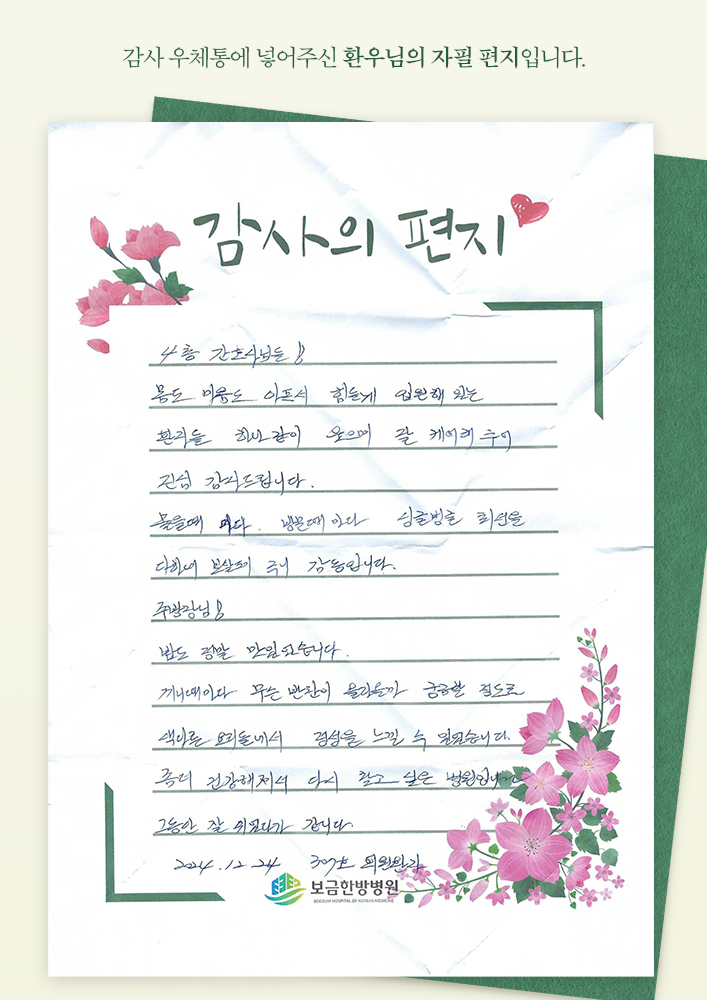 감사 우체통에 넣어주신 환우님의 자필 편지입니다.
감사의 편지
4층 간호사님들!
몸도 마음도 아프서 힘들게 입원해 있는
환자들 한가같이 웃으며 잘 케어해 주어
진심 감사드립니다.
물을때 마다. 볼때마다 싱글벙글 최선을
다하여 보살펴 주니 감동입니다.
주방장님!
밥도 정말 맛있었습니다.
끼니때마다 무슨 반찬이 올라올까 궁금할 정도로
색다른 요리들에서 정성을 느낄 수 있었습니다.
푹 건강해져서 다시 찾고 싶은 병원입니다
그동안 잘 쉬었다가 갑니다.
2024.12.24 307호 퇴원환자
보금한방병원
BOGEUM HOSPITAL OF KOREAN MEDICINE